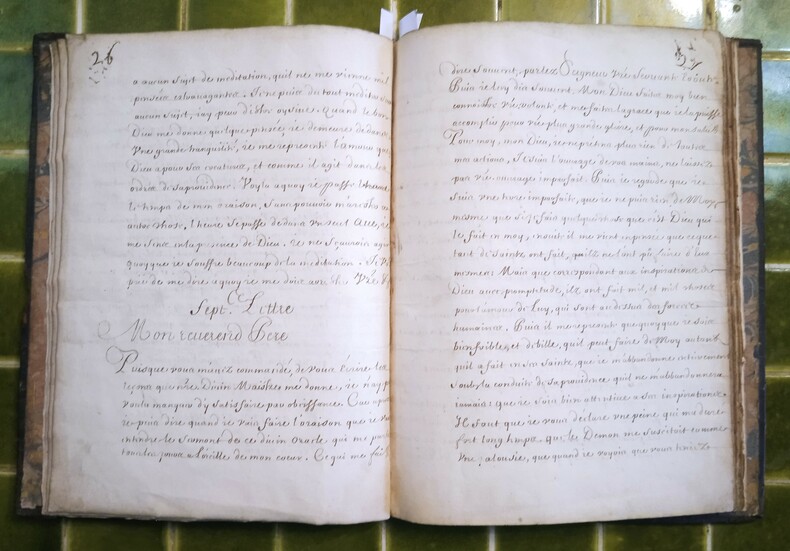 26
a aucun sujet de meditation, quil ne me vienne mil
pensées extravagantes. Je ne puis du tout mediter
aucun sujet, j'ay peur d'estre oysive. Quand le bon
Dieu me donne quelque pensée, je demeure dedans
Vne grande tranquilité, je me represente l'amour que
Dieu a pour ses creatures, et comme il agit dans les
ordres de sa prouidence. Voyla a quoy je passe
le temps de mon oraison, sans pouuoir m'arester a
autre chose. l'heure se passe dedans vn seul Acte, je
me sens en la presence de Dieu. je ne scaurois
quoy que je souffre beaucoup de la meditation.
de me dire a quoy je me dois Vre
Sept.e Lettre
Mon reuerend Pere
Puisque vous m'auez commandé, de vous écrire les
leçons que nre Diuin Maistre me donne, je n'ay p
voulu manquer d'y satisfaire par obeissance. Car
je puis dire quand je vais faire l'oraison que je v
entendre le sermont de ce diuin oracle qui me par
a l'oreille de mon coeur. Ce qui me fait
27
dire souuent, parlez Seigneur vre seruant écoute.
Puis je luy dis souuent. Mon Dieu faites moy bien
connoistre vre volonté, et me faites la grace que je la puisse
accomplir pour vre plus grande gloire, et pour mon salut.
Pour moy, mon Dieu, je ne pretens plus rien de toutes
mes actions. Je suis l'ouurage de vos mains, ne laissez
pas vre ouurage imparfait. Puis je regarde que je
suis vne imparfaite, que je ne puis rien de Moy
mesme que si je fais quelque chose que c'est Dieu qui
le fait en moy, ensuite il me vient en pensée que ce que
tant de Saints ont fait, par eux
mesmes. Mais que correspondant aux inspirations de
Dieu auec promptitude, ils ont fait mil, et mil choses
pour l'amour de Luy, qui sont au dessus des forces
humaines. Puis il me represente que quoy que je sois
bien foible, et debille, quil peut faire de Moy autant
quil a fait en ses Saints, que je m'abbandonne entierement
soubs la conduite de sa prouidence quil ne m'abbandonnera
iamais: que je sois bien attentiue a ses inspirations.
Il faut que je vous declare vne peine qui m'a duré
fort long temps que le Demon me suscitoit comme
vne jalousie, que quand je voyois que vous teniez